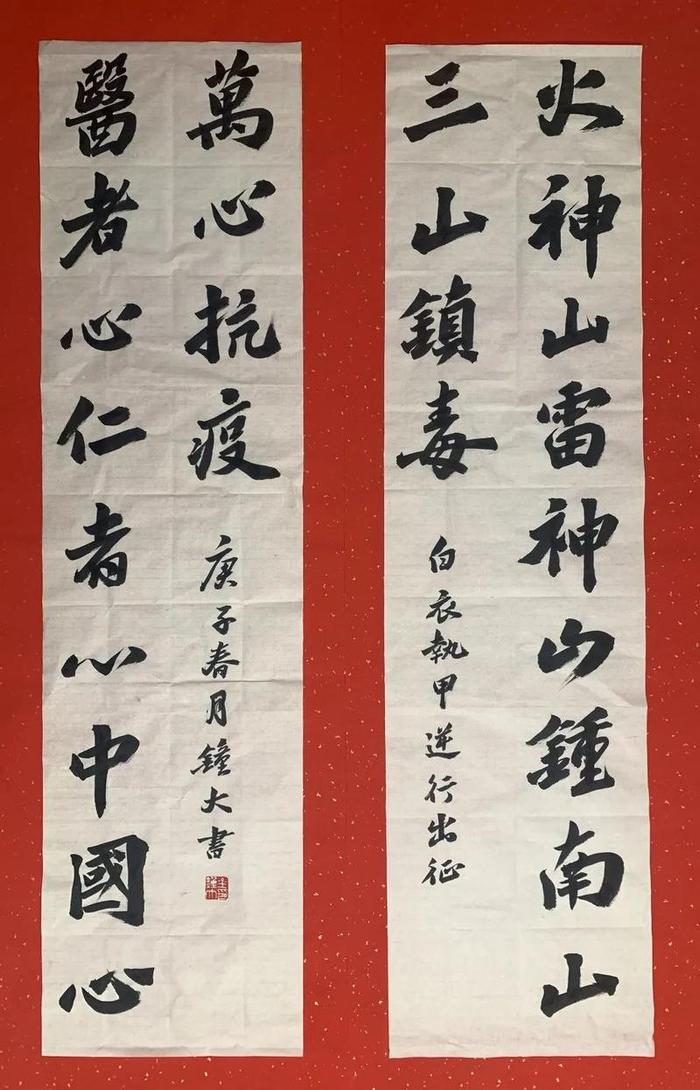 火神山雷神山鍾南山
三山鎮毒
白衣執甲逆行出征
醫者心仁者心中國心
萬心抗疫
庚子春月鐘大書